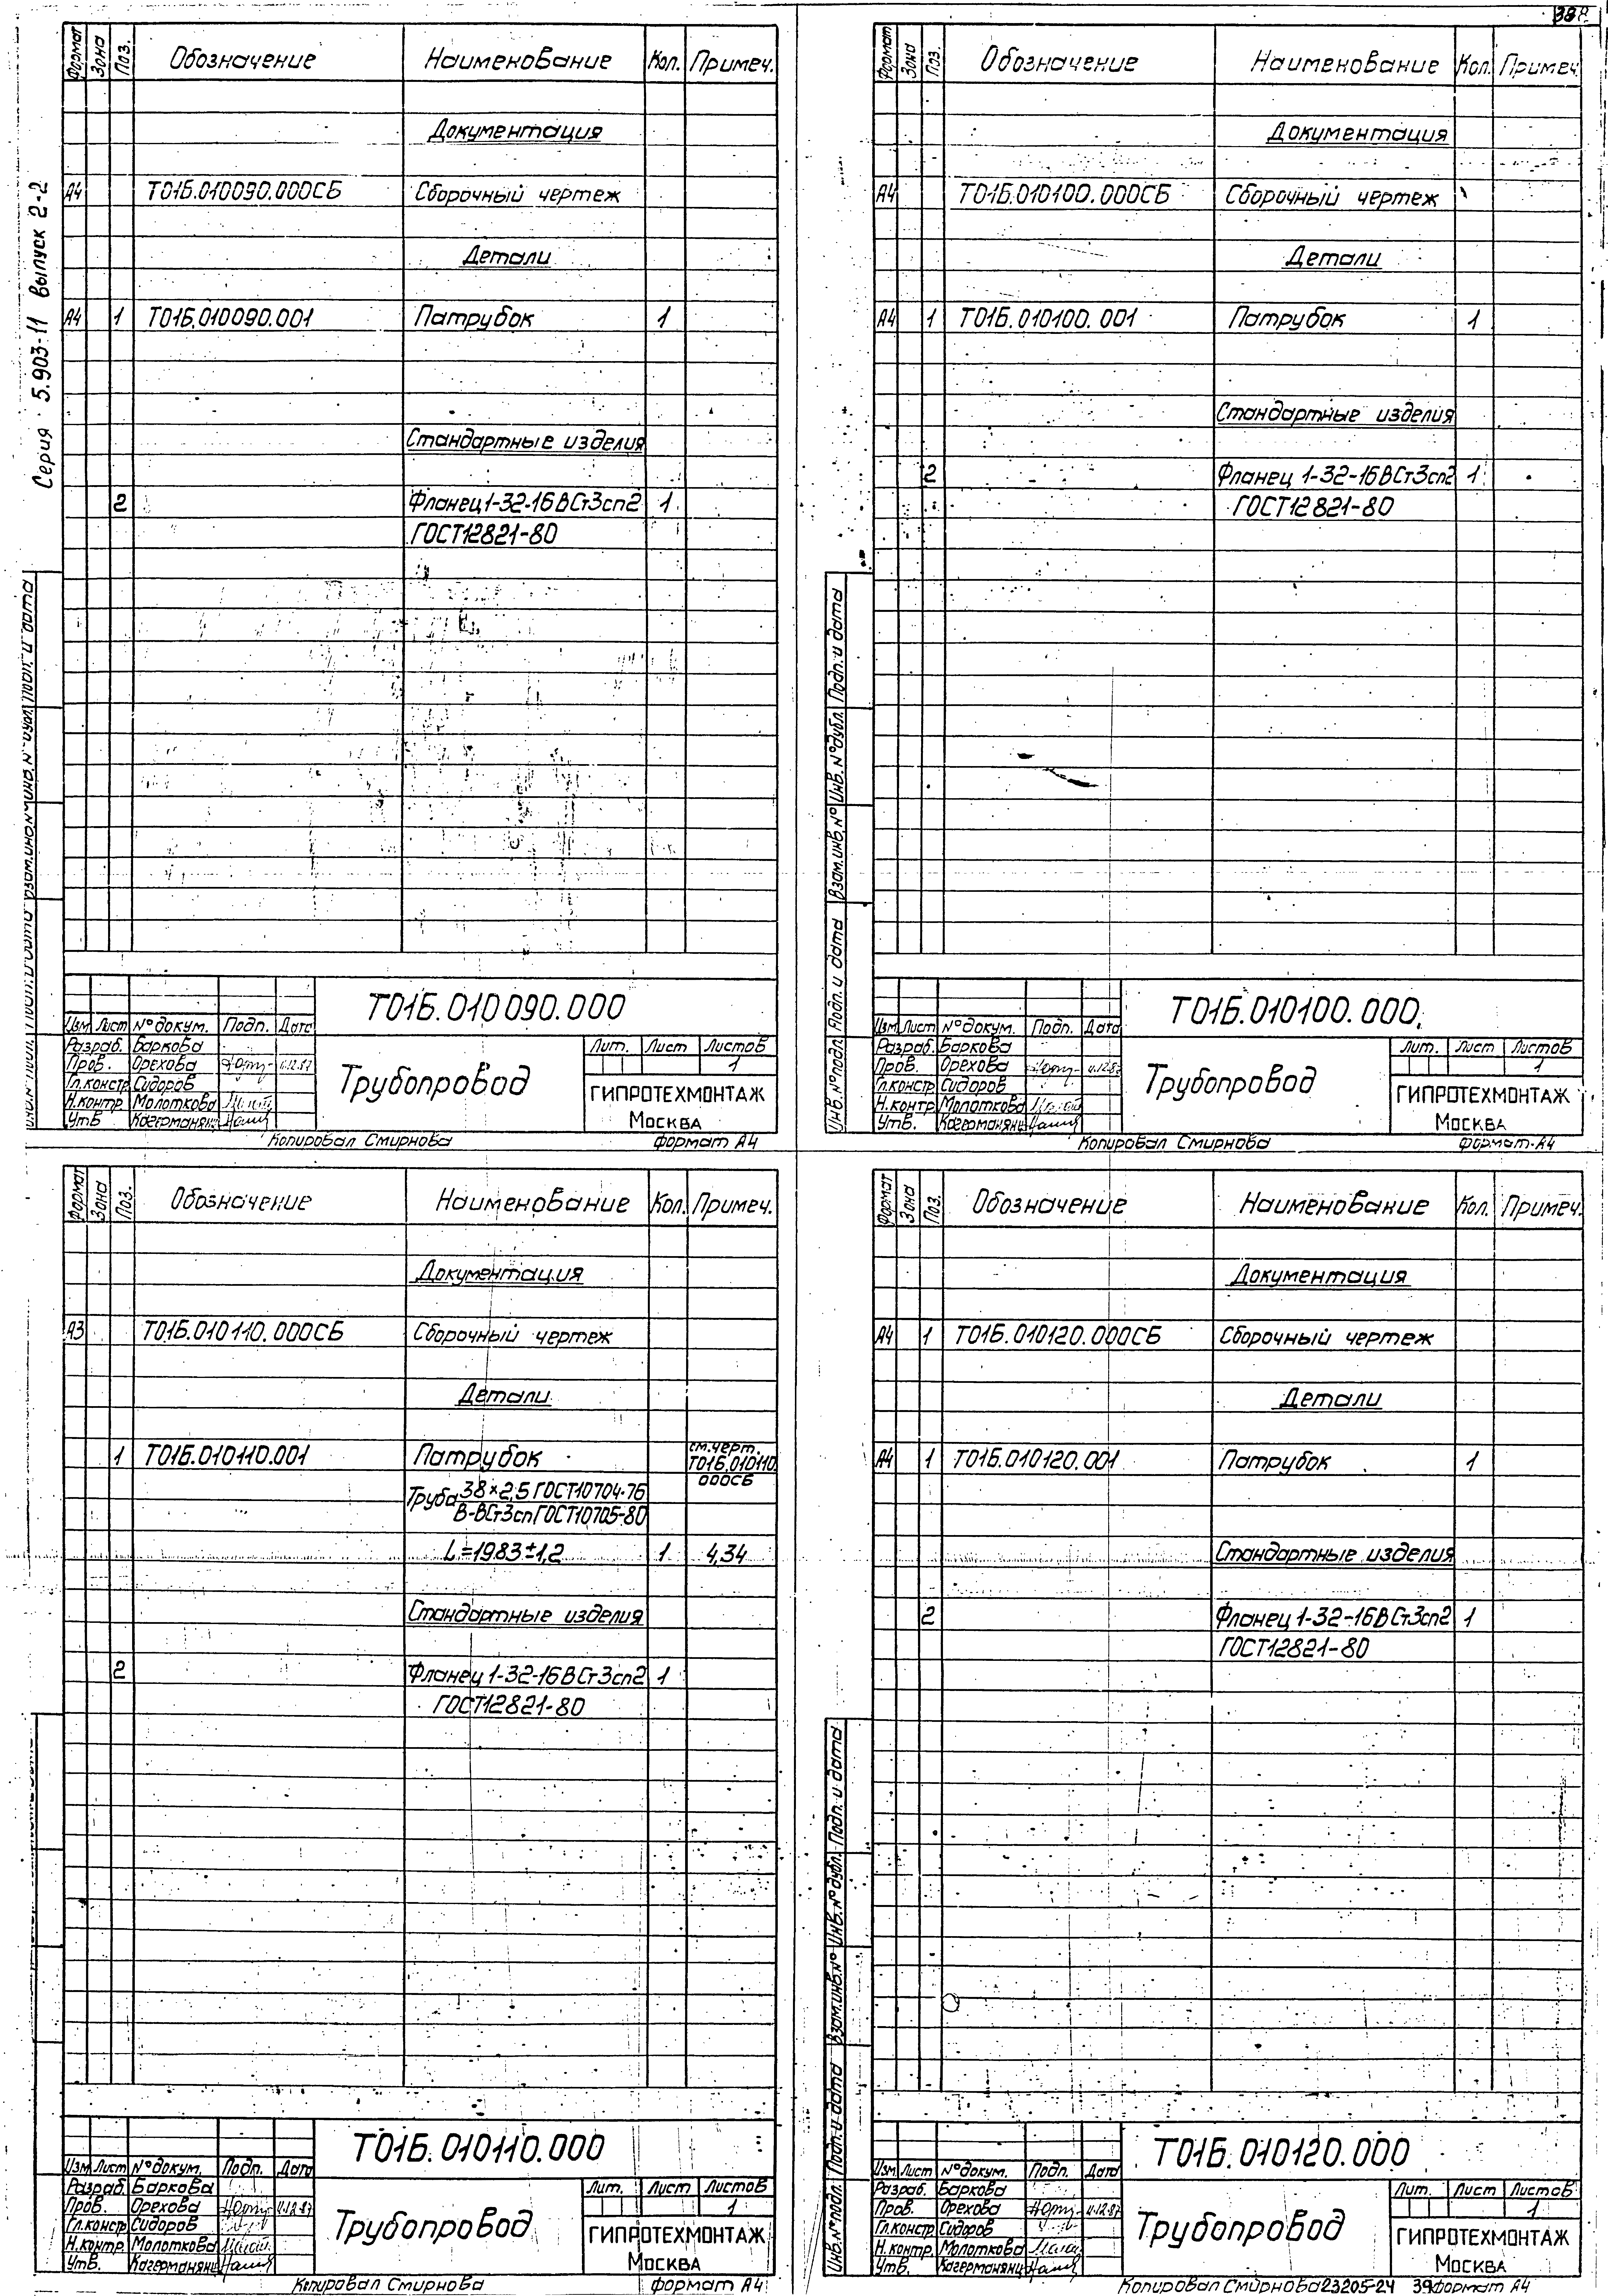 Серия 5.903-11 выпуск 2-2
Формат Зона Поз. Обозначение Наименование Кол. Примеч.
Документация
А4 Т01Б.010090.000СБ Сборочный чертеж
Детали
А4 1 Т01Б.010090.001 Патрубок 1
Стандартные изделия
2 Фланец 1-32-16 ВСт3сп2 1
ГОСТ12821-80
Т01Б.010090.000
Изм Лист N° докум. Подп. Дата
Разраб. Баркова
Пров. Орехова
Гл.констр Сидоров
Н.контр Молоткова
Утв
Трубопровод
Лит. Лист Листов
1
ГИПРОТЕХМОНТАЖ
МОСКВА
Копировал Смирнова формат А4
Формат Зона Поз. Обозначение Наименование Кол. Примеч.
Документация
А4 Т01Б.010100.000СБ Сборочный чертеж
Детали
А4 1 Т01Б.010100.001 Патрубок 1
Стандартные изделия
2 Фланец 1-32-16 ВСт3сп2 1
ГОСТ12821-80
Инв. N° подл. Подп. и дата Взам. инв. N° Инв. N° дубл. Подп. и дата
Т01Б.010100.000
Изм Лист N° докум. Подп. Дата
Разраб. Баркова
Пров. Орехова
Гл.констр Сидоров
Н.контр Молоткова
Утв.
Трубопровод
Лит. Лист Листов
1
ГИПРОТЕХМОНТАЖ
МОСКВА
Копировал Смирнова формат А4
Формат Зона Поз. Обозначение Наименование Кол. Примеч.
Документация
А3 Т01Б.010110.000СБ Сборочный чертеж
Детали
1 Т01Б.010110.001 Патрубок см.черт.
Т01Б.010110.
000СБ
Труба 38×2,5 ГОСТ10704-76
В-ВСт3сп ГОСТ10705-80
L=1983±1,2 1 4,34
Стандартные изделия
2 Фланец 1-32-16 ВСт3сп2 1
ГОСТ12821-80
Т01Б.010110.000
Изм Лист N° докум. Подп. Дата
Разраб. Баркова
Пров. Орехова
Гл.констр Сидоров
Н.контр. Молоткова
Утв.
Трубопровод
Лит. Лист Листов
1
ГИПРОТЕХМОНТАЖ
МОСКВА
Копировал Смирнова формат А4
Формат Зона Поз. Обозначение Наименование Кол. Примеч.
Документация
А4 1 Т01Б.010120.000СБ Сборочный чертеж
Детали
А4 1 Т01Б.010120.001 Патрубок 1
Стандартные изделия
2 Фланец 1-32-16 ВСт3сп2 1
ГОСТ12821-80
Инв. N° подл. Подп. и дата Взам. инв. N° Инв. N° дубл. Подп. и дата
Т01Б.010120.000
Изм Лист N° докум. Подп. Дата
Разраб. Баркова
Пров. Орехова
Гл.констр Сидоров
Н.контр. Молоткова
Утв.
Трубопровод
Лит. Лист Листов
1
ГИПРОТЕХМОНТАЖ
МОСКВА
Копировал Смирнова 23205-24 39 формат А4